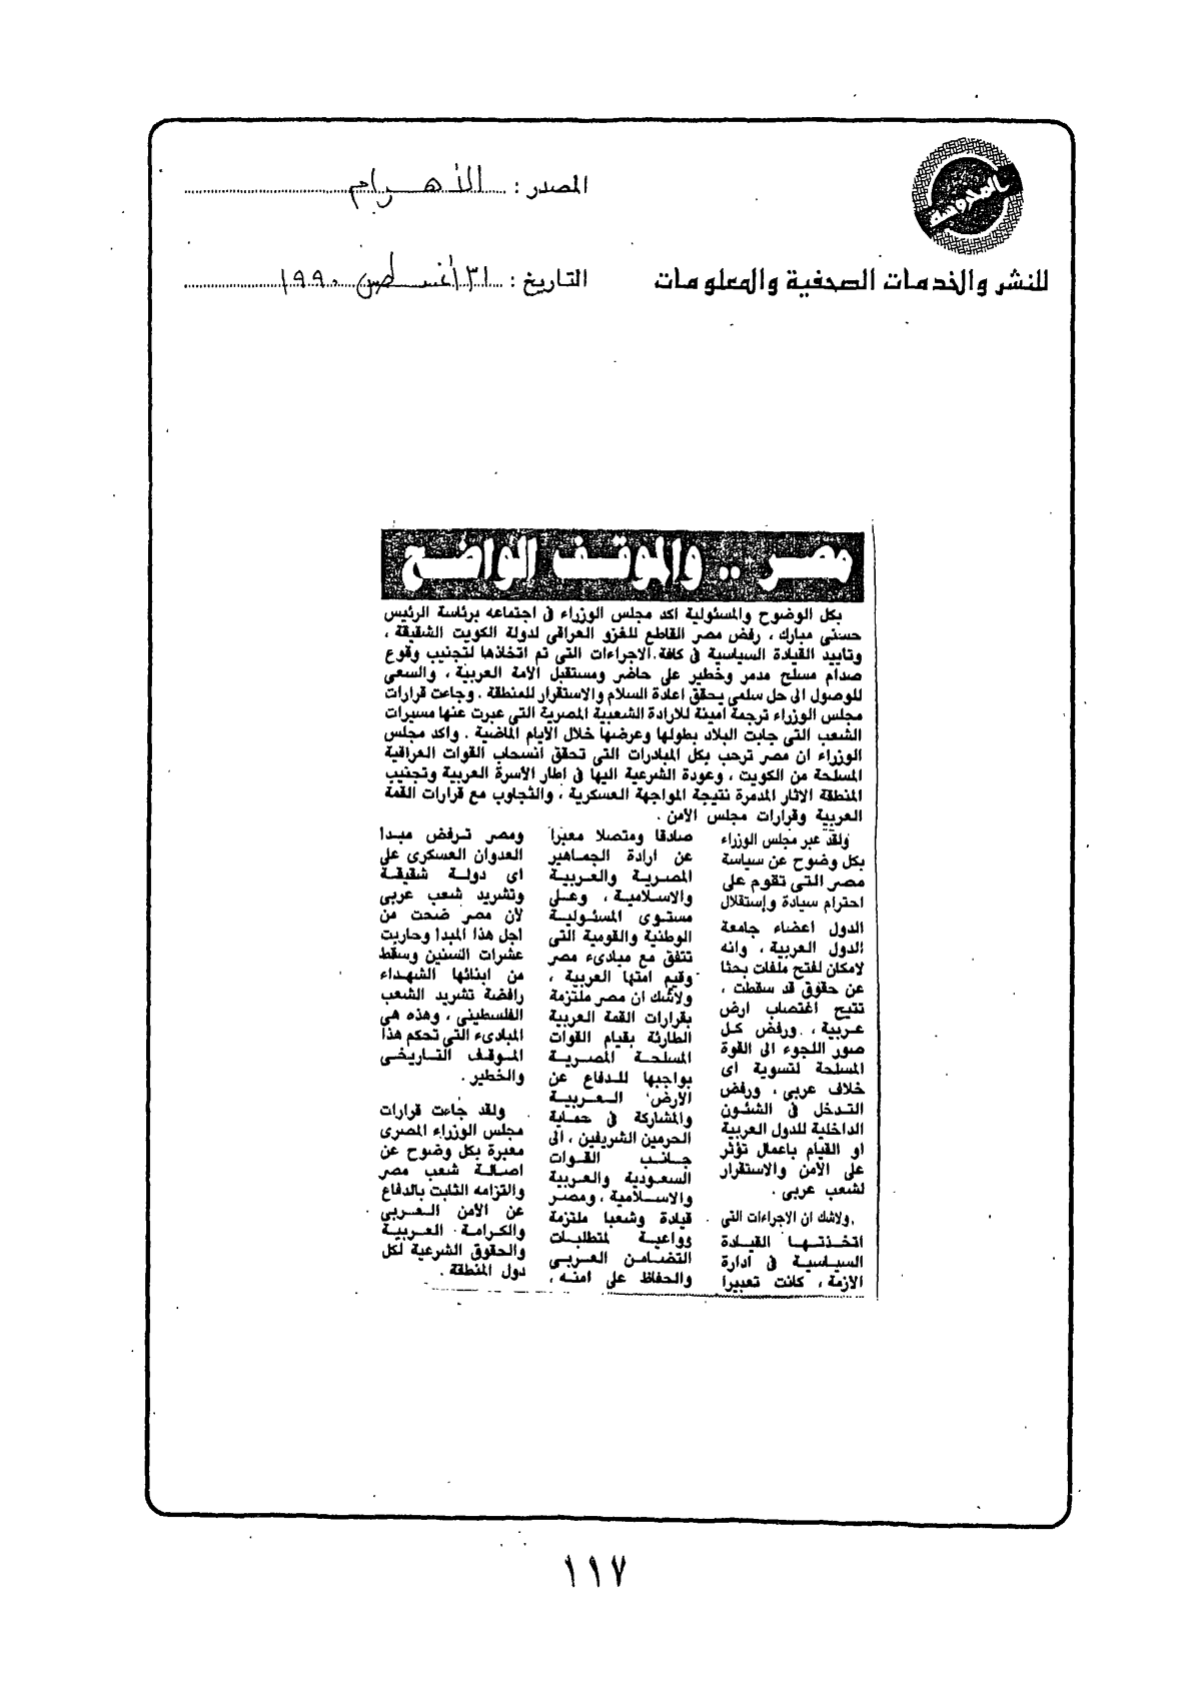 المصدر : الأهرام
المحروسة
للنشر والخدمات الصحفية والمعلومات
التاريخ : ٣١ أغسطس ١٩٩٠
مصر .. والموقف الواضح
بكل الوضوح والمسئولية اكد مجلس الوزراء فى اجتماعه برئاسة الرئيس
حسنى مبارك ، رفض مصر القاطع للغزو العراقى لدولة الكويت الشقيقة ،
وتاييد القيادة السياسية فى كافة الاجراءات التى تم اتخاذها لتجنيب وقوع
صدام مسلح مدمر وخطير على حاضر ومستقبل الأمة العربية ، والسعى
للوصول الى حل سلمى يحقق اعادة السلام والاستقرار للمنطقة . وجاءت قرارات
مجلس الوزراء ترجمة امينة للارادة الشعبية المصرية التى عبرت عنها مسيرات
الشعب التى جابت البلاد بطولها وعرضها خلال الايام الماضية . واكد مجلس
الوزراء ان مصر ترحب بكل المبادرات التى تحقق انسحاب القوات العراقية
المسلحة من الكويت ، وعودة الشرعية اليها فى اطار الأسرة العربية وتجنيب
المنطقة الاثار المدمرة نتيجة المواجهة العسكرية ، والتجاوب مع قرارات القمة
العربية وقرارات مجلس الأمن .
ولقد عبر مجلس الوزراء
بكل وضوح عن سياسة
مصر التى تقوم على
احترام سيادة وإستقلال
الدول اعضاء جامعة
الدول العربية ، وانه
لامكان لفتح ملفات بحثا
عن حقوق قد سقطت ،
تتيح اغتصاب ارض
عربية ، ورفض كل
صور اللجوء الى القوة
المسلحة لتسوية اى
خلاف عربى ، ورفض
التدخل فى الشئون
الداخلية للدول العربية
او القيام باعمال تؤثر
على الأمن والاستقرار
لشعب عربى .
ولاشك ان الاجراءات التى
اتخذتها القيادة
السياسية فى ادارة
الازمة ، كانت تعبيرا
صادقا ومتصلا معبرا
عن ارادة الجماهير
المصرية والعربية
والاسلامية ، وعلى
مستوى المسئولية
الوطنية والقومية التى
تتفق مع مبادىء مصر
وقيم امتها العربية ،
ولاشك ان مصر ملتزمة
بقرارات القمة العربية
الطارئة بقيام القوات
المسلحة المصرية
بواجبها للدفاع عن
الارض العربية
والمشاركة فى حماية
الحرمين الشريفين ، الى
جانب القوات
السعودية والعربية
والاسلامية ، ومصر
قيادة وشعبا ملتزمة
وواعية لمتطلبات
التضامن العربى
والحفاظ على امنه ،
ومصر ترفض مبدأ
العدوان العسكرى على
اى دولة شقيقة
وتشريد شعب عربى
لأن مصر ضحت من
اجل هذا المبدا وحاربت
عشرات السنين وسقط
من ابنائها الشهداء
رافضة تشريد الشعب
الفلسطينى ، وهذه هى
المبادىء التى تحكم هذا
الموقف التاريخى
والخطير .
ولقد جاءت قرارات
مجلس الوزراء المصرى
معبرة بكل وضوح عن
اصالة شعب مصر
والتزامه الثابت بالدفاع
عن الأمن العربى
والكرامة العربية
والحقوق الشرعية لكل
دول المنطقة .
١١٧